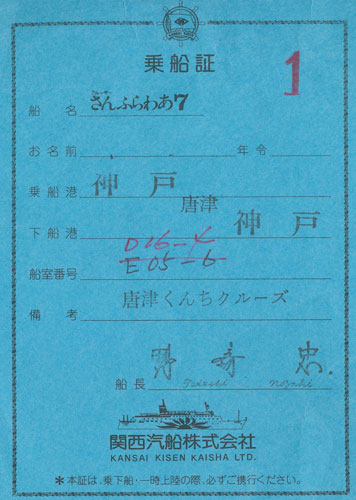 乗船証
1
船名 さんふらわあ7
お名前 年令
乗船港 神戸
唐津
下船港 神戸
D16-4
船室番号 E05-6
備考 唐津くんちクルーズ
船長 野崎忠
Tadashi Nozaki
関西汽船株式会社
KANSAI KISEN KAISHA LTD.
*本証は、乗下船・一時上陸の際、必ずご携行ください。